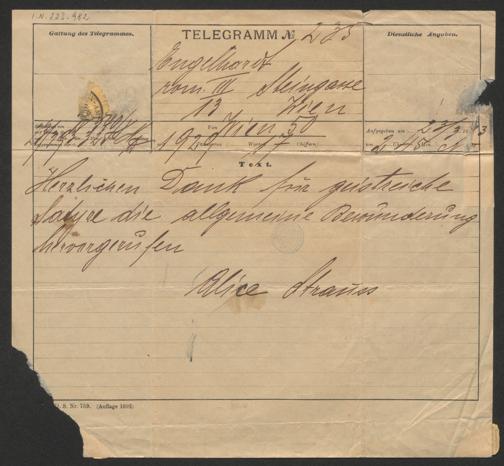 I.N. 223.982
Gattung des Telegrammes.
TELEGRAMM № 235
Dienstliche Angaben.
Engelhardt
rom. III Steingasse
13 Wien
Aufgegeben am 23/3
Von Wien 50
1929
Text.
Herzlichen Dank für geistreiche
Satyre die allgemeine Bewunderung
hervorgerufen
Alice Strauss
D. S. Nr. 759. (Auflage 1892)